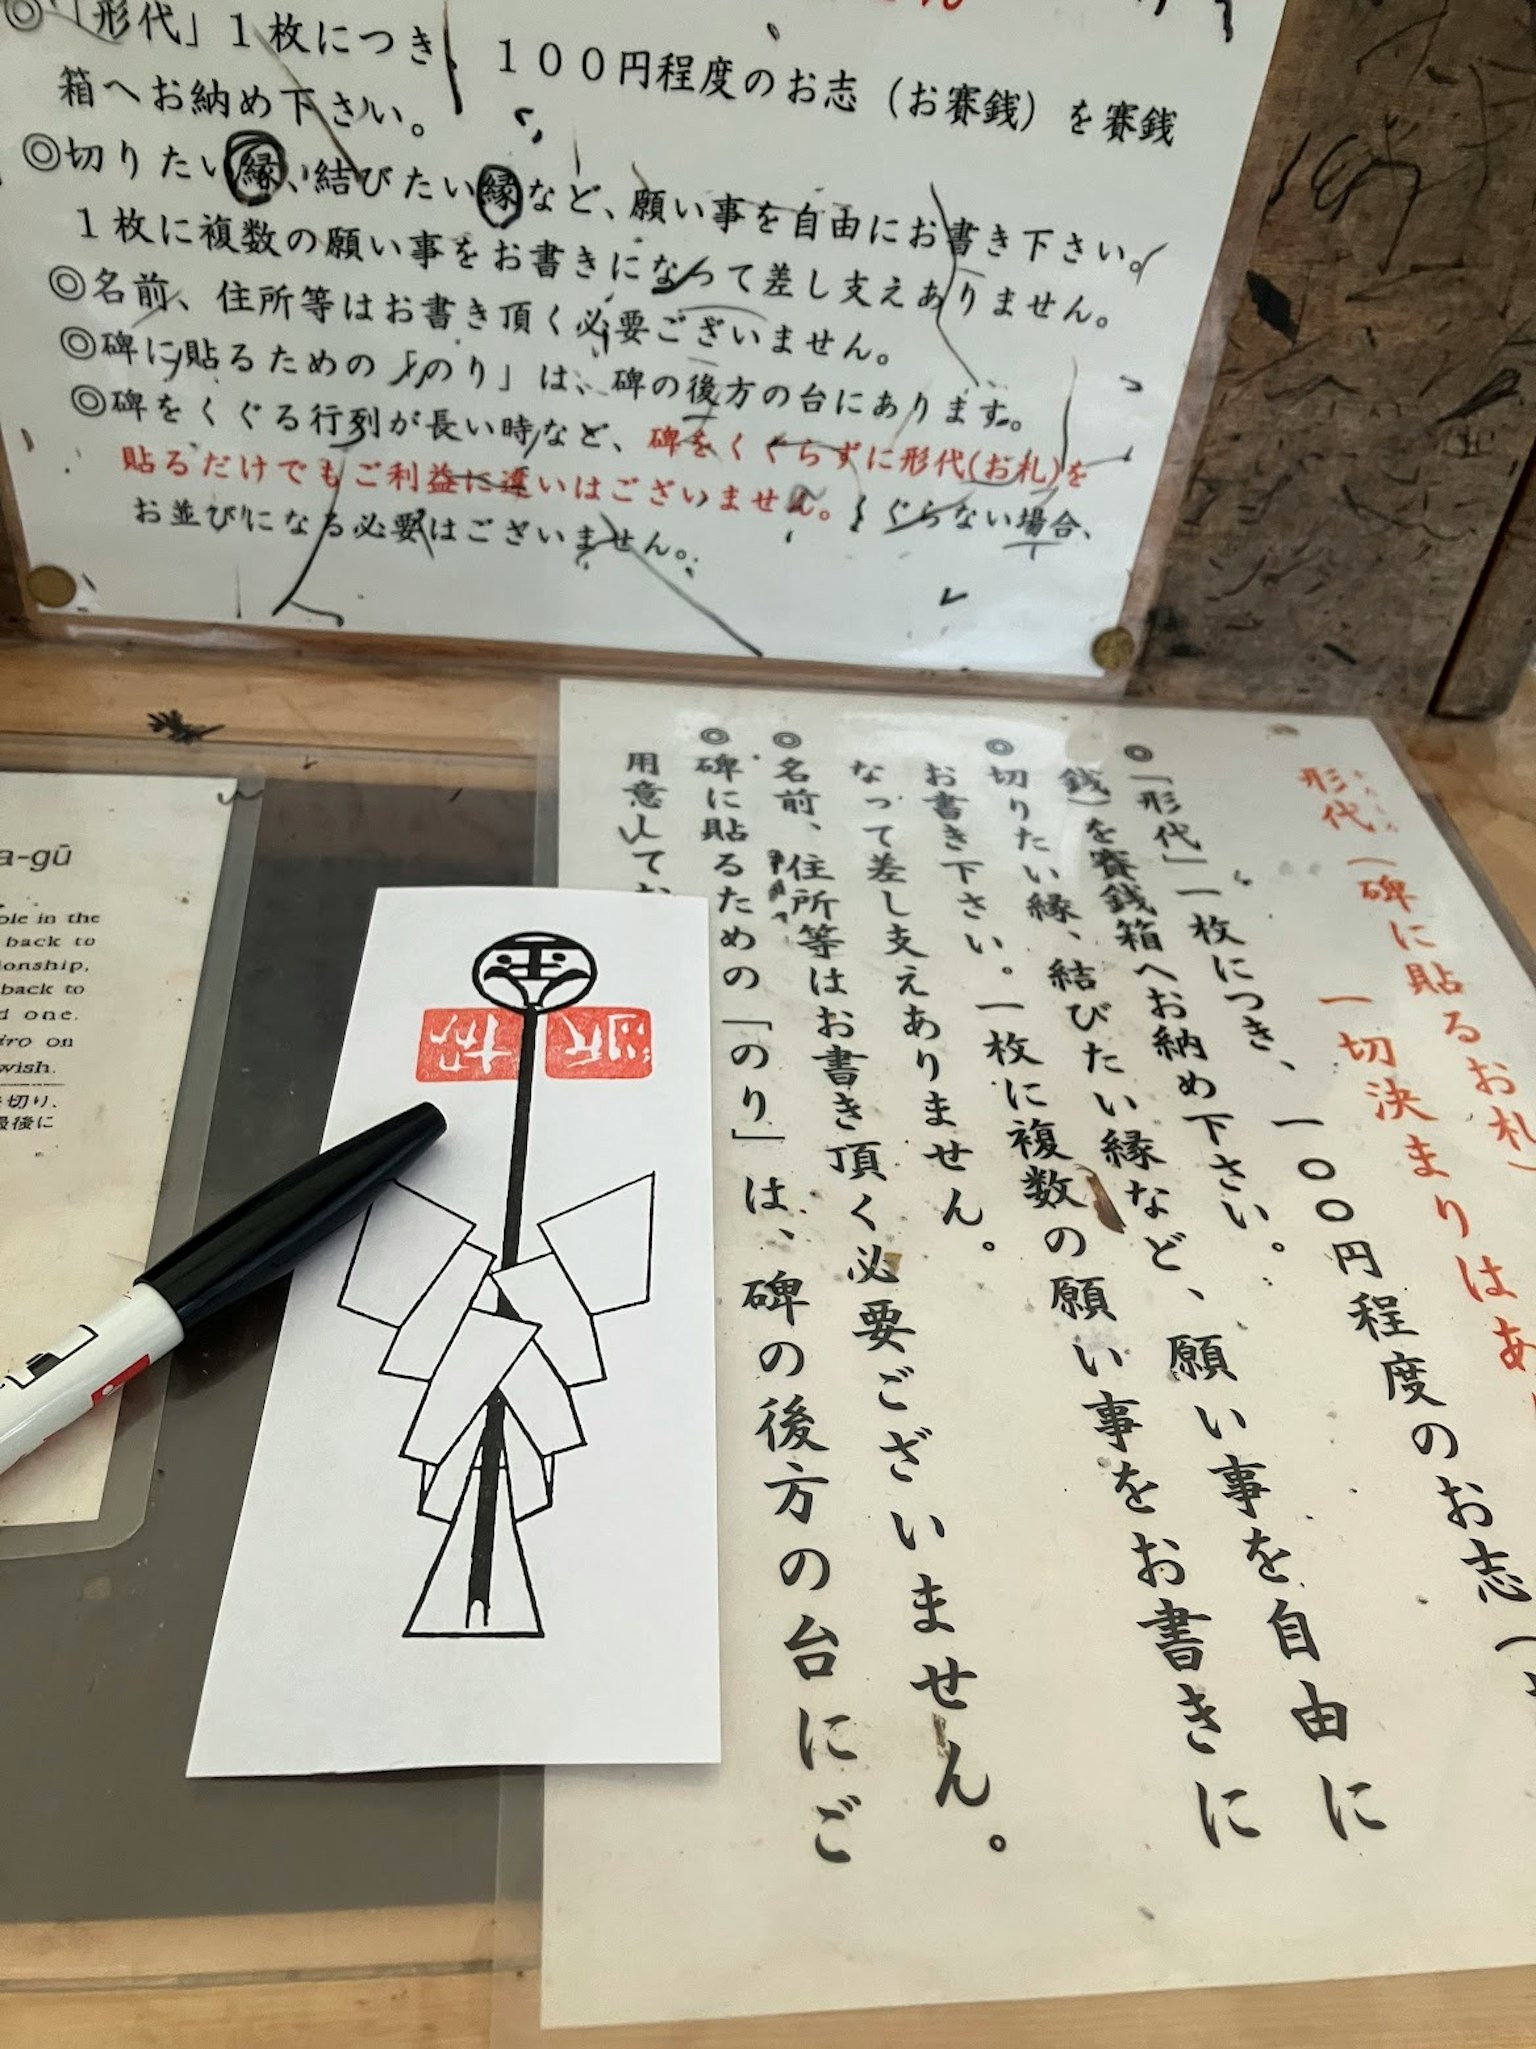 ◎「形代」1枚につき、100円程度のお志（お賽銭）を賽銭
箱へお納め下さい。
◎切りたい縁、結びたい縁など、願い事を自由にお書き下さい。
1枚に複数の願い事をお書きになって差し支えありません。
◎名前、住所等はお書き頂く必要ございません。
◎碑に貼るための「のり」は、碑の後方の台にあります。
◎碑をくぐる行列が長い時など、碑をくぐらずに形代(お札)を
貼るだけでもご利益に違いはございません。くぐらない場合、
お並びになる必要はございません。
形代（碑に貼るお札）
一切決まりはあ
◎「形代」一枚につき、一〇〇円程度のお志（
銭）を賽銭箱へお納め下さい。
◎切りたい縁、結びたい縁など、願い事を自由に
お書き下さい。一枚に複数の願い事をお書きに
なって差し支えありません。
◎名前、住所等はお書き頂く必要ございません。
◎碑に貼るための「のり」は、碑の後方の台にご
用意して
a-gū
ble in the
back to
ionship,
back to
d one.
iro on
wish.
切り、
最後に